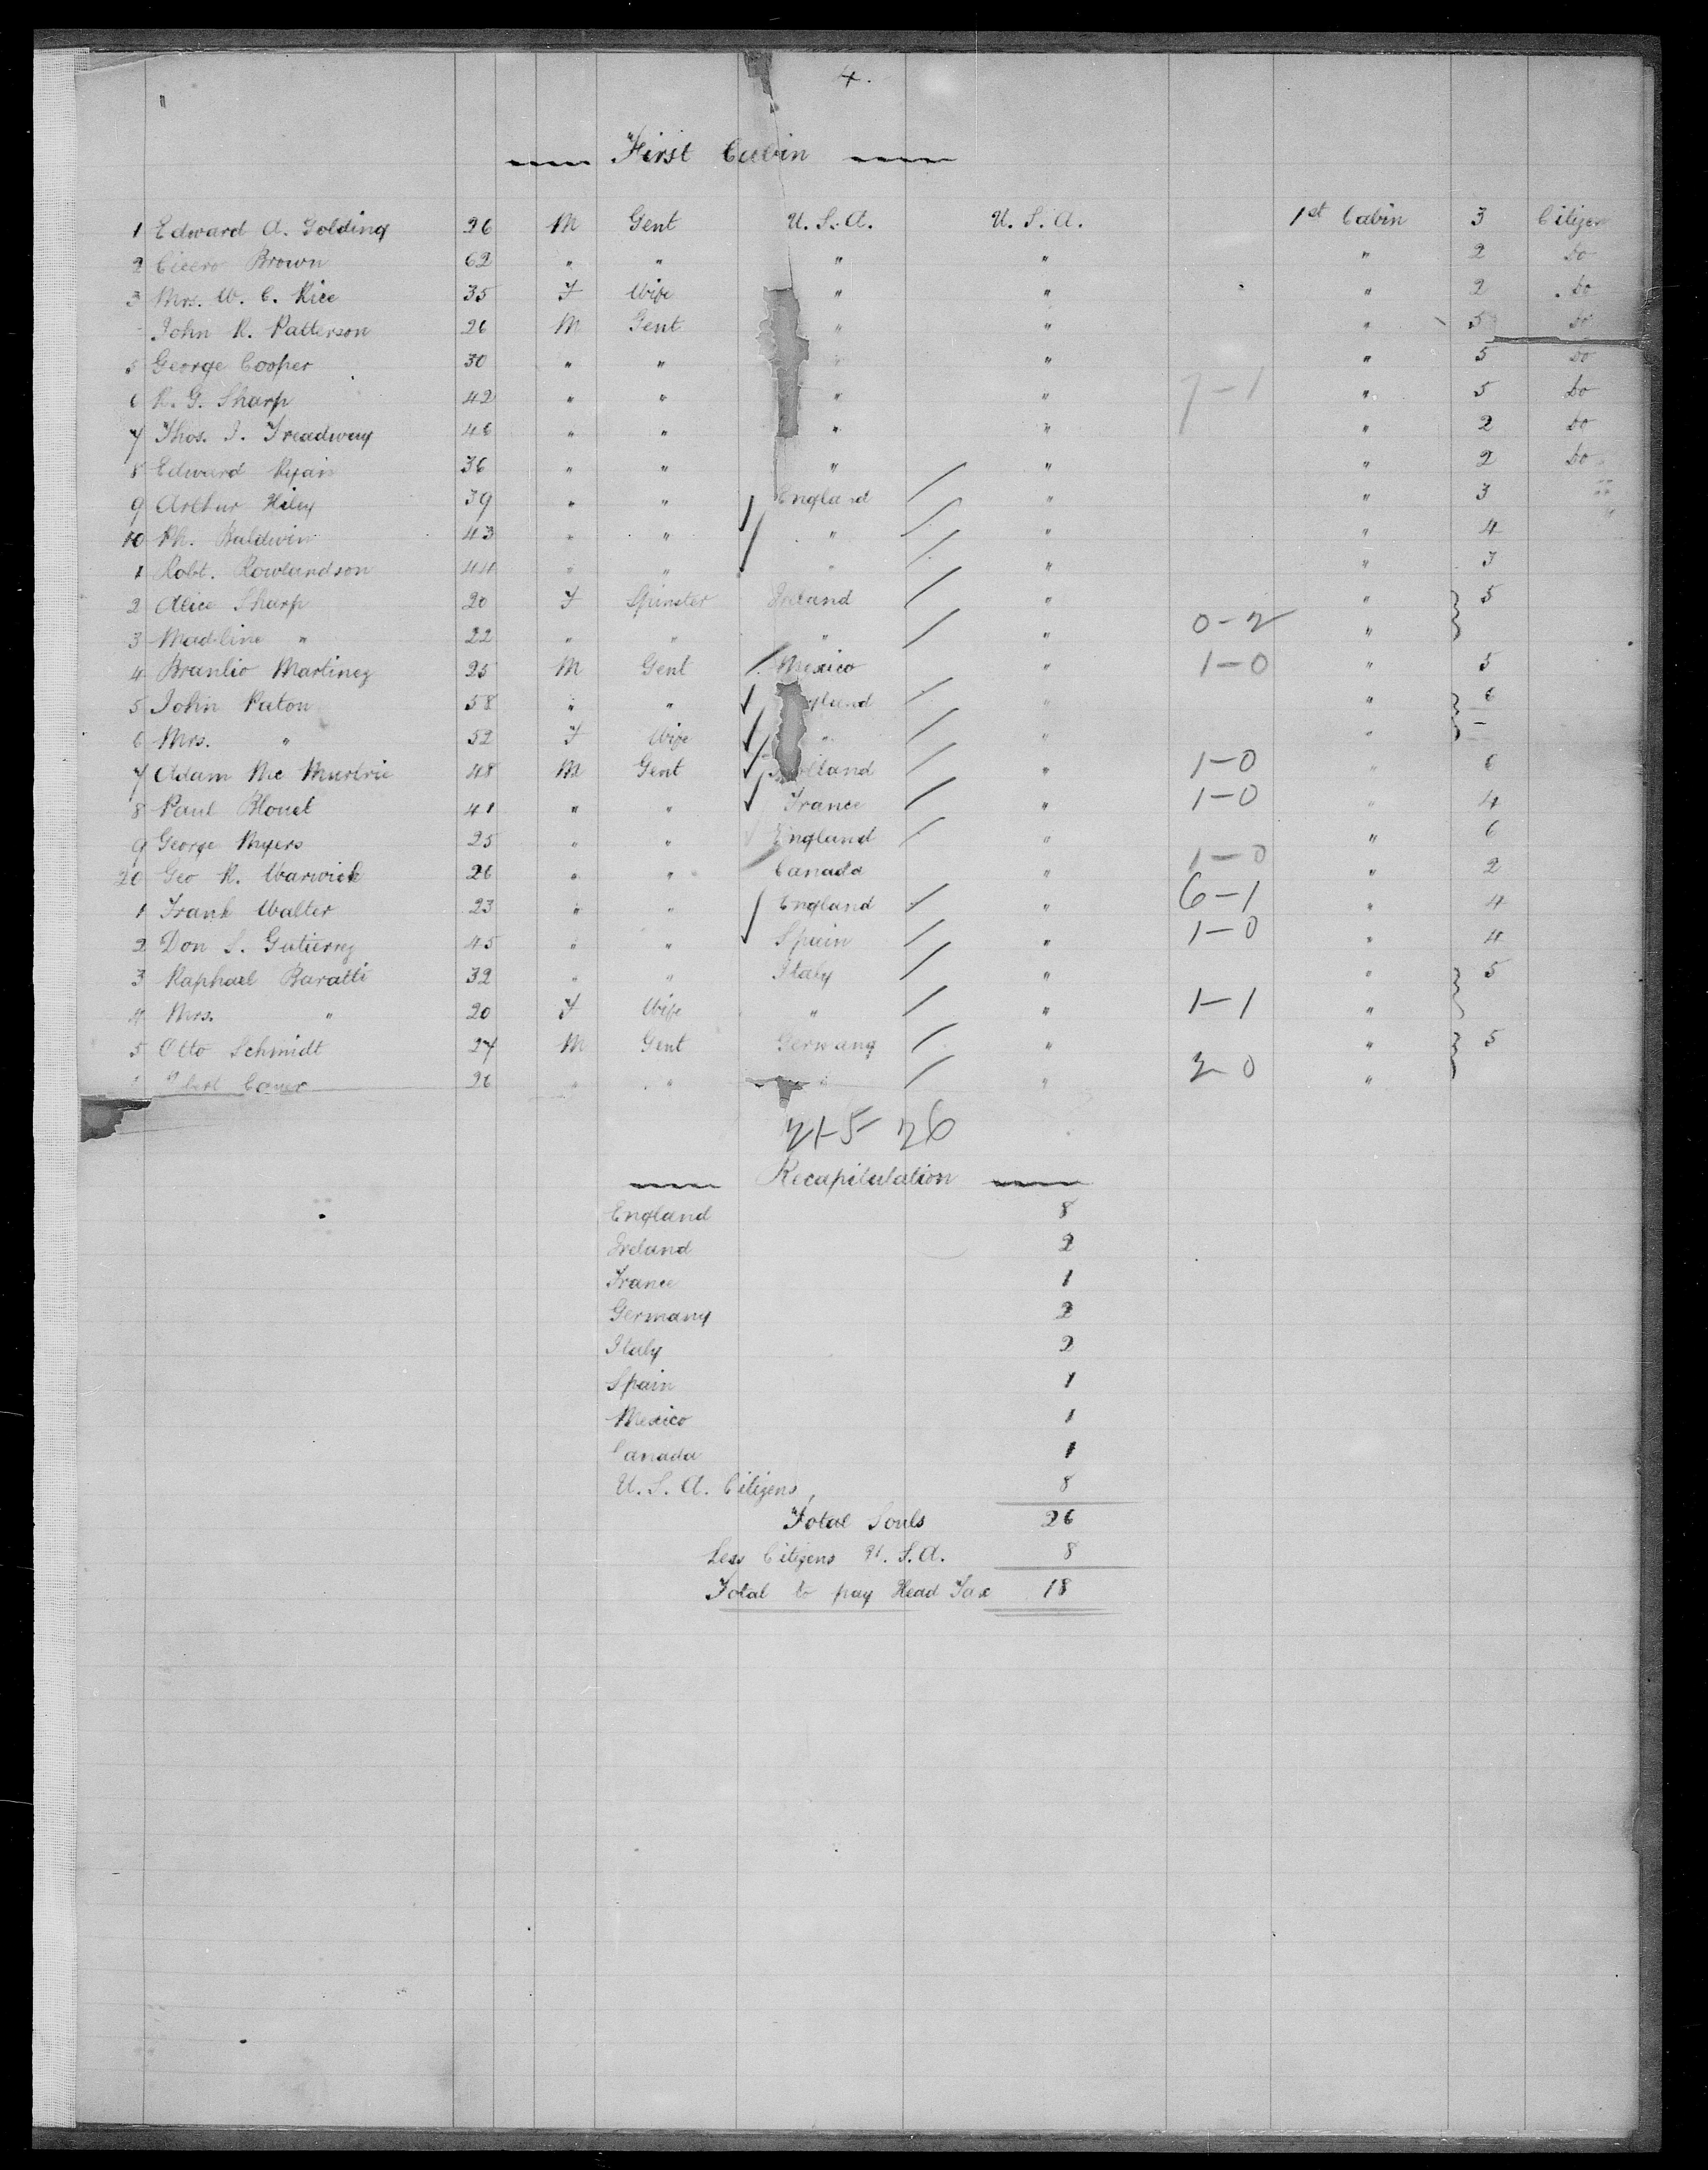 4.
First Cabin
1 Edward A. Golding 26 M Gent U.S.A. U.S.A. 1st Cabin 3 Citizen
2 Cicero Brown 62 " " " " " 2 do
3 Mrs. W. C. Rice 35 F Wife " " " 2 do
John R. Patterson 26 M Gent " " " 5 do
5 George Cooper 30 " " " " " 5 do
6 R. G. Sharp 42 " " " " 7-1 " 5 do
7 Thos. J. Treadway 46 " " " " " 2 do
8 Edward Ryan 36 " " " " " 2 do
9 Arthur Hiley 39 " " England " " 3 "
10 Ph. Baldwin 43 " " " " " 4 "
1 Robt. Rowlandson 44 " " " " " 3
2 Alice Sharp 20 F Spinster Ireland " " 5
3 Madeline " 22 " " " " 0-2 "
4 Branlio Martinez 25 M Gent Mexico " 1-0 " 5
5 John Paton 58 " " England " " 6
6 Mrs. " 52 F Wife " " " -
7 Adam Mc Murtrie 48 M Gent " 1-0 " 6
8 Paul Blouet 41 " " France " 1-0 " 4
9 George Myers 25 " " England " " 6
20 Geo R. Warwick 26 " " Canada " 1-0 " 2
1 Frank Walter 23 " " England " 6-1 " 4
2 Don S. Gutierrez 45 " " Spain " 1-0 " 4
3 Raphael Baratti 32 " " Italy " " 5
4 Mrs. " 20 F Wife " " 1-1 "
5 Otto Schmidt 27 M Gent Germany " " 5
26 " " " " 2-0 "
21-5 26
Recapitulation
England 8
Ireland 2
France 1
Germany 2
Italy 2
Spain 1
Mexico 1
Canada 1
U.S.A. Citizens 8
Total Souls 26
Less Citizens U.S.A. 8
Total to pay Head Tax 18